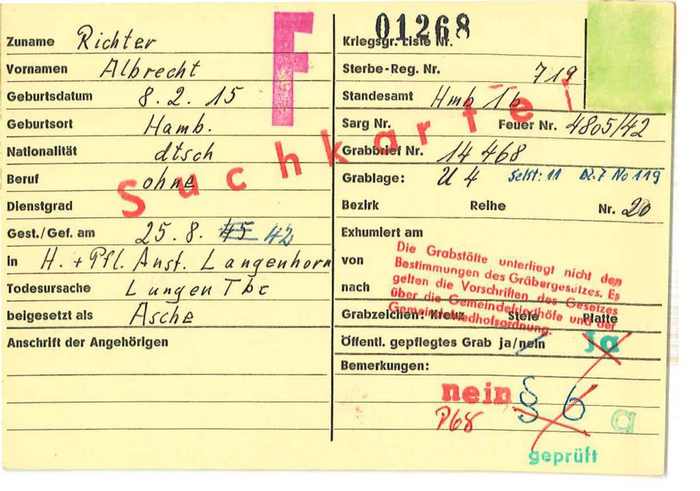 01268
F
Suchkartei
Zuname Richter
Vornamen Albrecht
Geburtsdatum 8.2.15
Geburtsort Hamb.
Nationalität dtsch
Beruf ohne
Dienstgrad
Gest./Gef. am 25.8. 45 42
in H. + Pfl. Anst. Langenhorn
Todesursache Lungen Tbc
beigesetzt als Asche
Anschrift der Angehörigen
Kriegsgr. Liste Nr.
Sterbe-Reg. Nr. 719
Standesamt Hmb 1b
Sarg Nr. Feuer Nr. 4805/42
Grabbrief Nr. 14 468
Grablage: U 4 No 119
Bezirk Reihe Nr. 20
Exhumiert am
von
nach
Die Grabstätte unterliegt nicht den
Bestimmungen des Gräbergesetzes. Es
gelten die Vorschriften des Gesetzes
über die Gemeindefriedhöfe und der
Gemeindefriedhofsordnung.
Grabzeichen: Kreuz Stele Platte
Öffentl. gepflegtes Grab ja/nein ja
Bemerkungen:
nein § 6
P68 a
geprüft